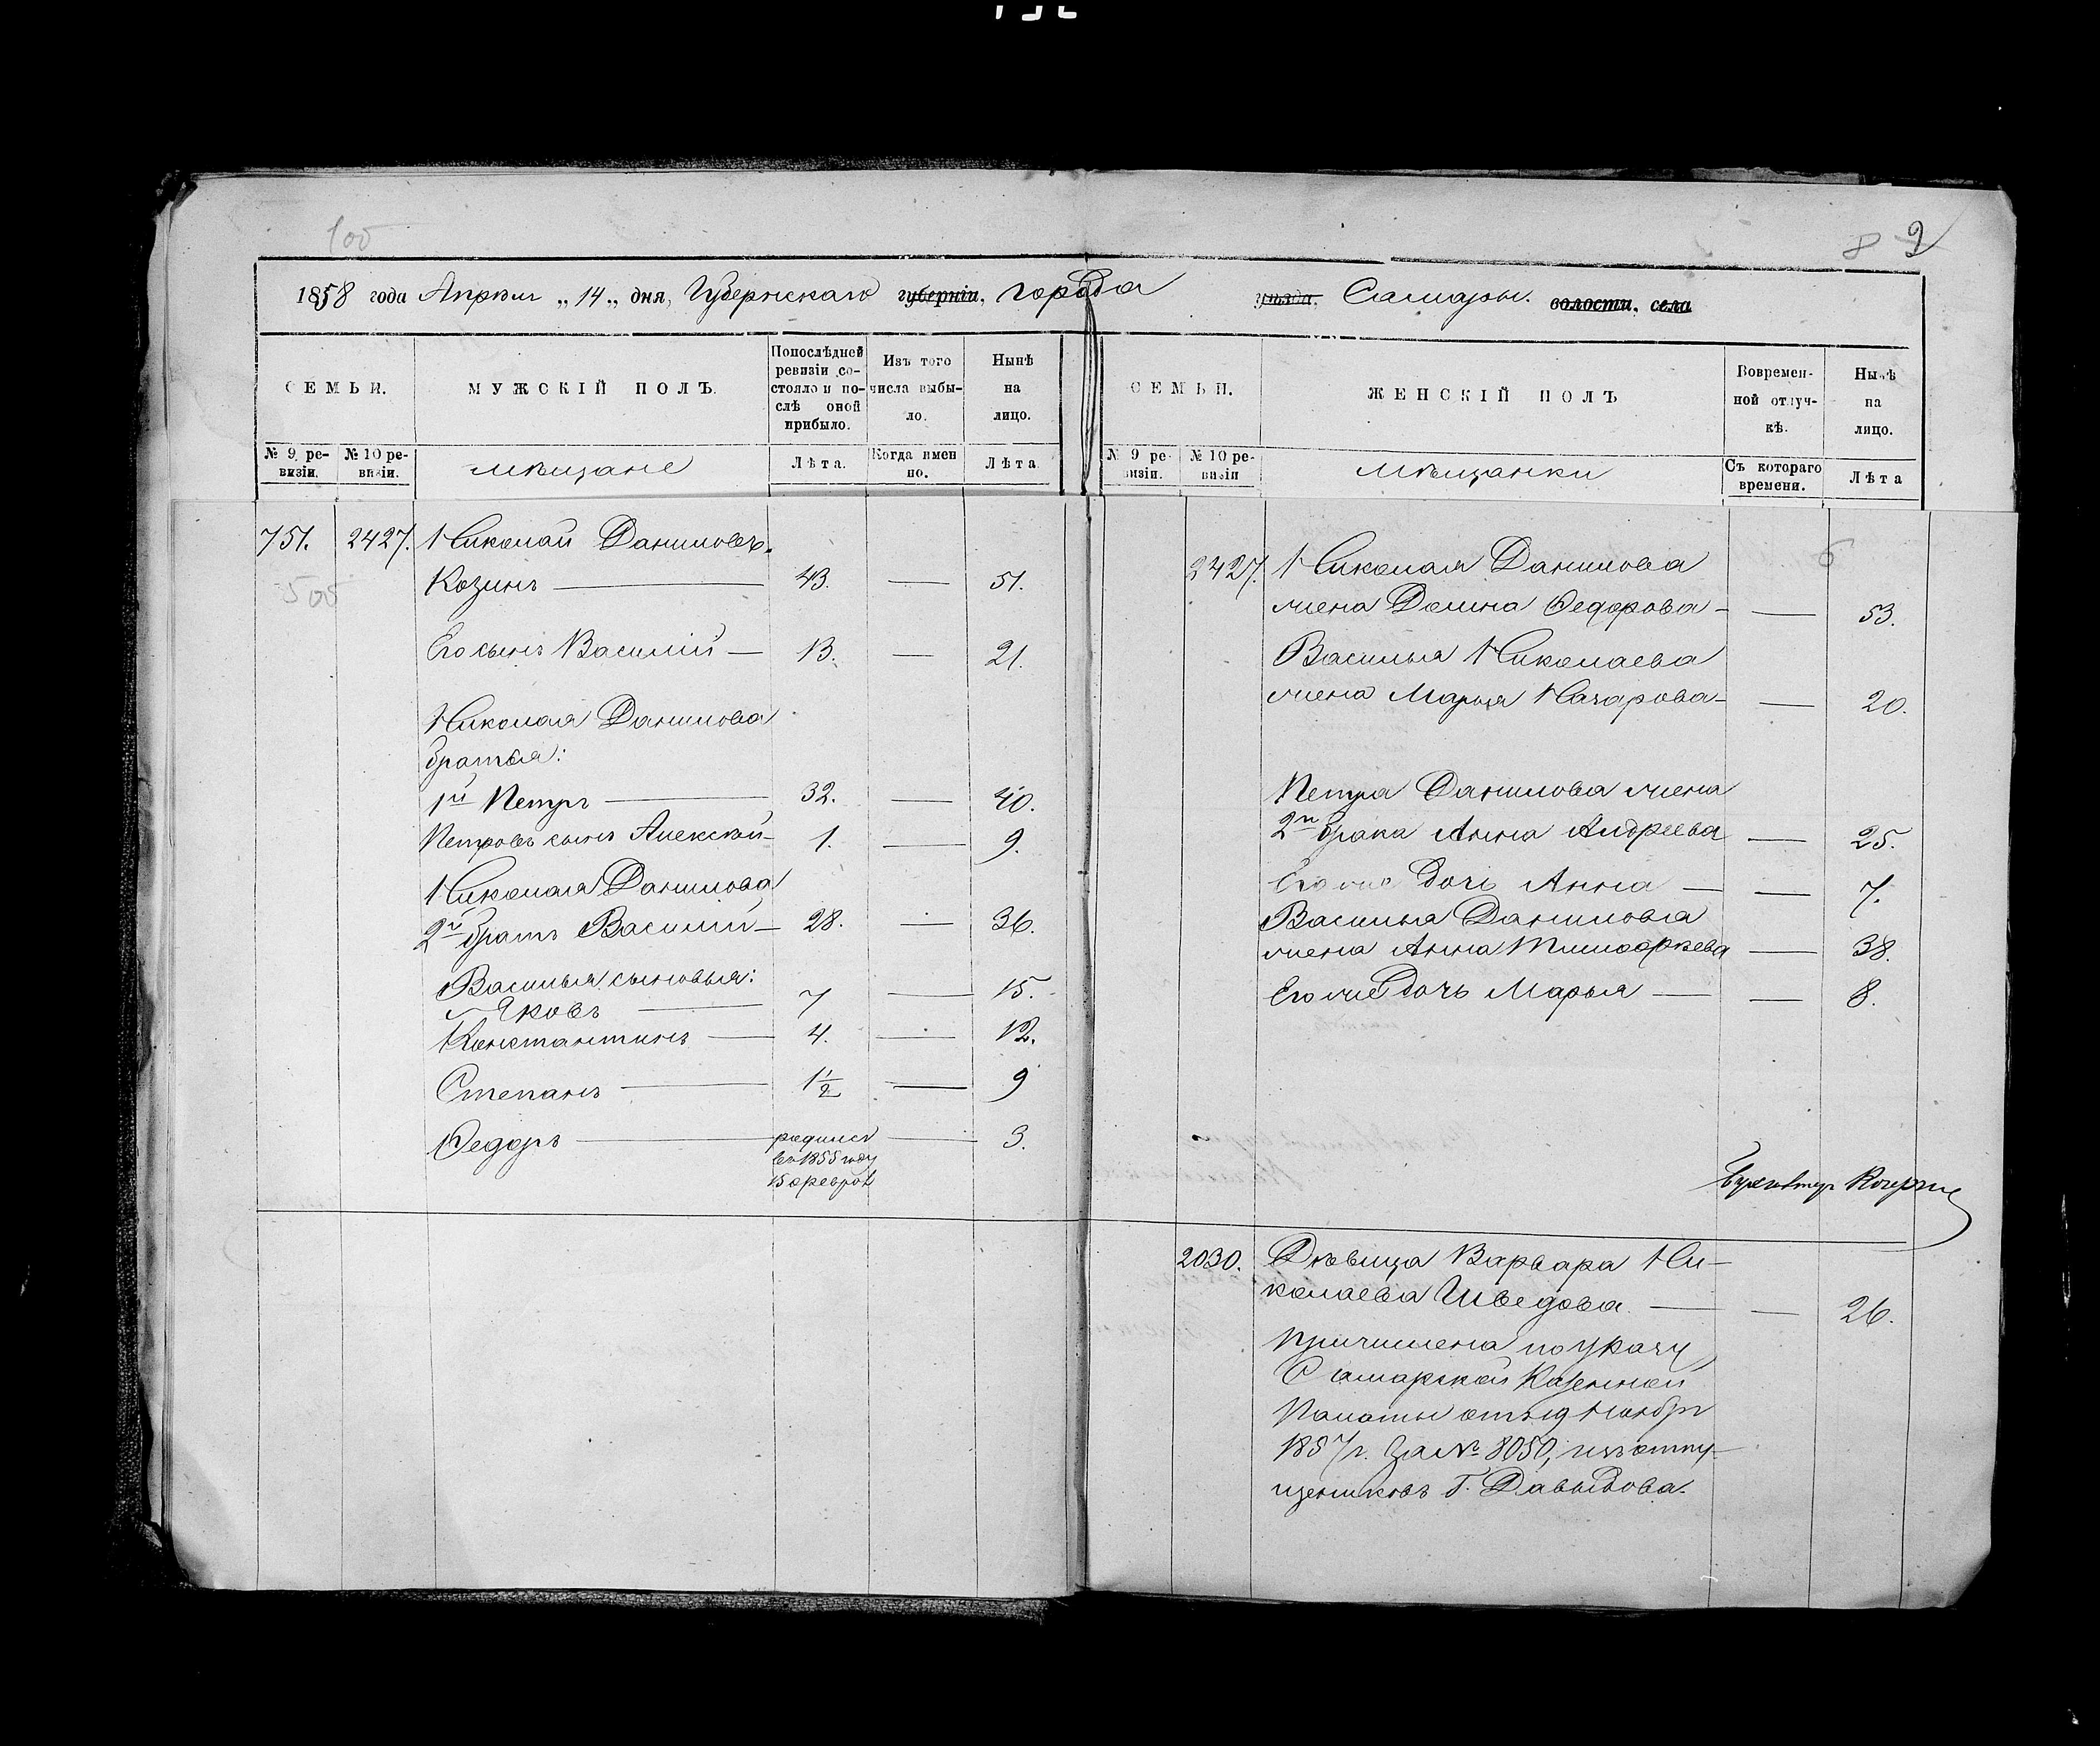 100
8 9
1858 года Апрѣля „14„ дня, Губернскаго губерніи, города
уѣзда, Самары. волости, села
СЕМЬИ.
МУЖСКІЙ ПОЛЪ.
Попослѣдней
ревизіи со-
стояло и по-
слѣ оной
прибыло.
Изъ того
числа выбы-
ло.
Нынѣ
на
лицо.
№ 9 ре-
визіи.
№ 10 ре-
визіи.
мѣщане
Лѣта.
Когда имен
но.
Лѣта
751. 2427. Николай Даниловъ
505
Козинъ — 43. — 51.
Его сынъ Василій — 13. — 21.
Николая Данилова
братья:
1й Петръ — 32. — 40.
Петровъ сынъ Алексѣй — 1. — 9.
Николая Данилова
2й братъ Василій — 28. — 36.
Василья сыновья:
Яковъ — 7 — 15.
Константинъ — 4. — 12.
Степанъ — 1½ — 9
Федоръ — родился — 3.
въ 1855 году
15 февраля
СЕМЬИ.
ЖЕНСКІЙ ПОЛЪ
Вовремен-
ной отлуч-
кѣ.
Нынѣ
на
лицо.
№ 9 ре-
визіи.
№ 10 ре-
визіи
мѣщанки
Съ котораго
времени.
Лѣта
6
2427. Николая Данилова
жена Домна Федорова — — 53.
Василья Николаева
жена Марья Назарова — — 20.
Петра Данилова жена
2го брака Анна Андреева — 25.
Его же дочь Анна — — 7.
Василья Данилова
жена Анна Тимофѣева — 38.
Его же дочь Марья — — 8.
2030. Дѣвица Варвара Ни-
колаева Шведова — — 26.
Причислена по указу
Самарской Казенной
Палаты отъ 19 Ноябр
1857 г. За № 8050, изъ отпу-
щенниковъ Г. Давыдова.